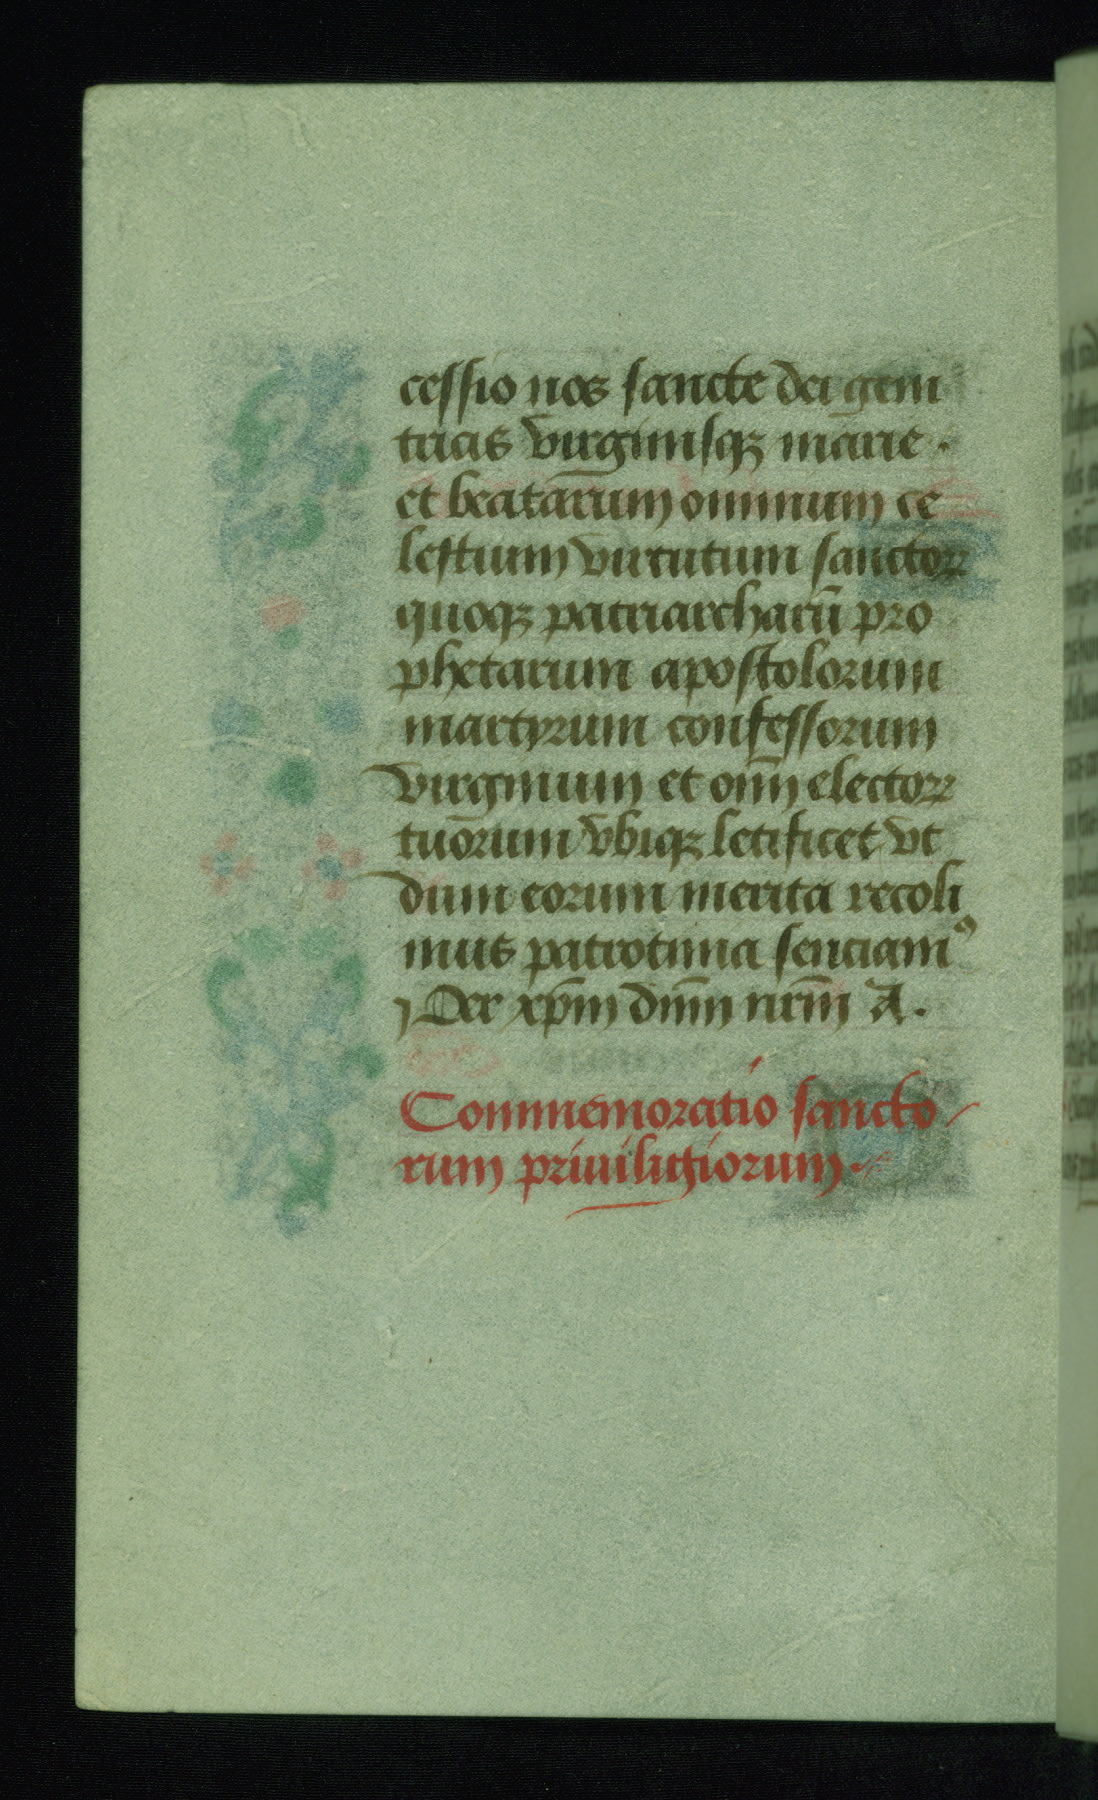 cessio nos sancte dei geni
tricis virginisqꝫ marie .
et beatarum omnium ce
lestium virtutum sanctoꝝ
quoqꝫ patriarcharū pro
phetarum apostolorum
martyrum confessorum
virginum et oīm electoꝝ
tuorum vbiqꝫ letificet vt
dum eorum merita recoli
mus patrocinia senciamꝰ
Per xp̄m dn̄m nr̄m A .
Commemoratio sancto
rum priuiligiorum .